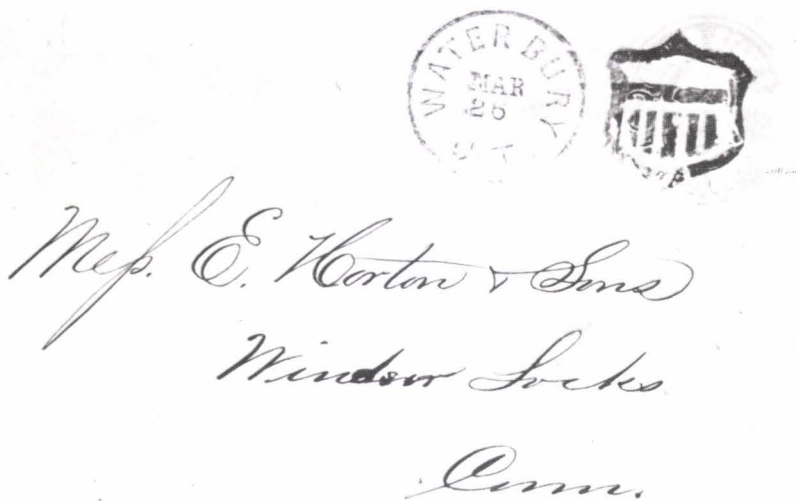 WATERBURY
MAR
26
CT
Mess. E. Horton & Sons
Windsor Locks
Conn.